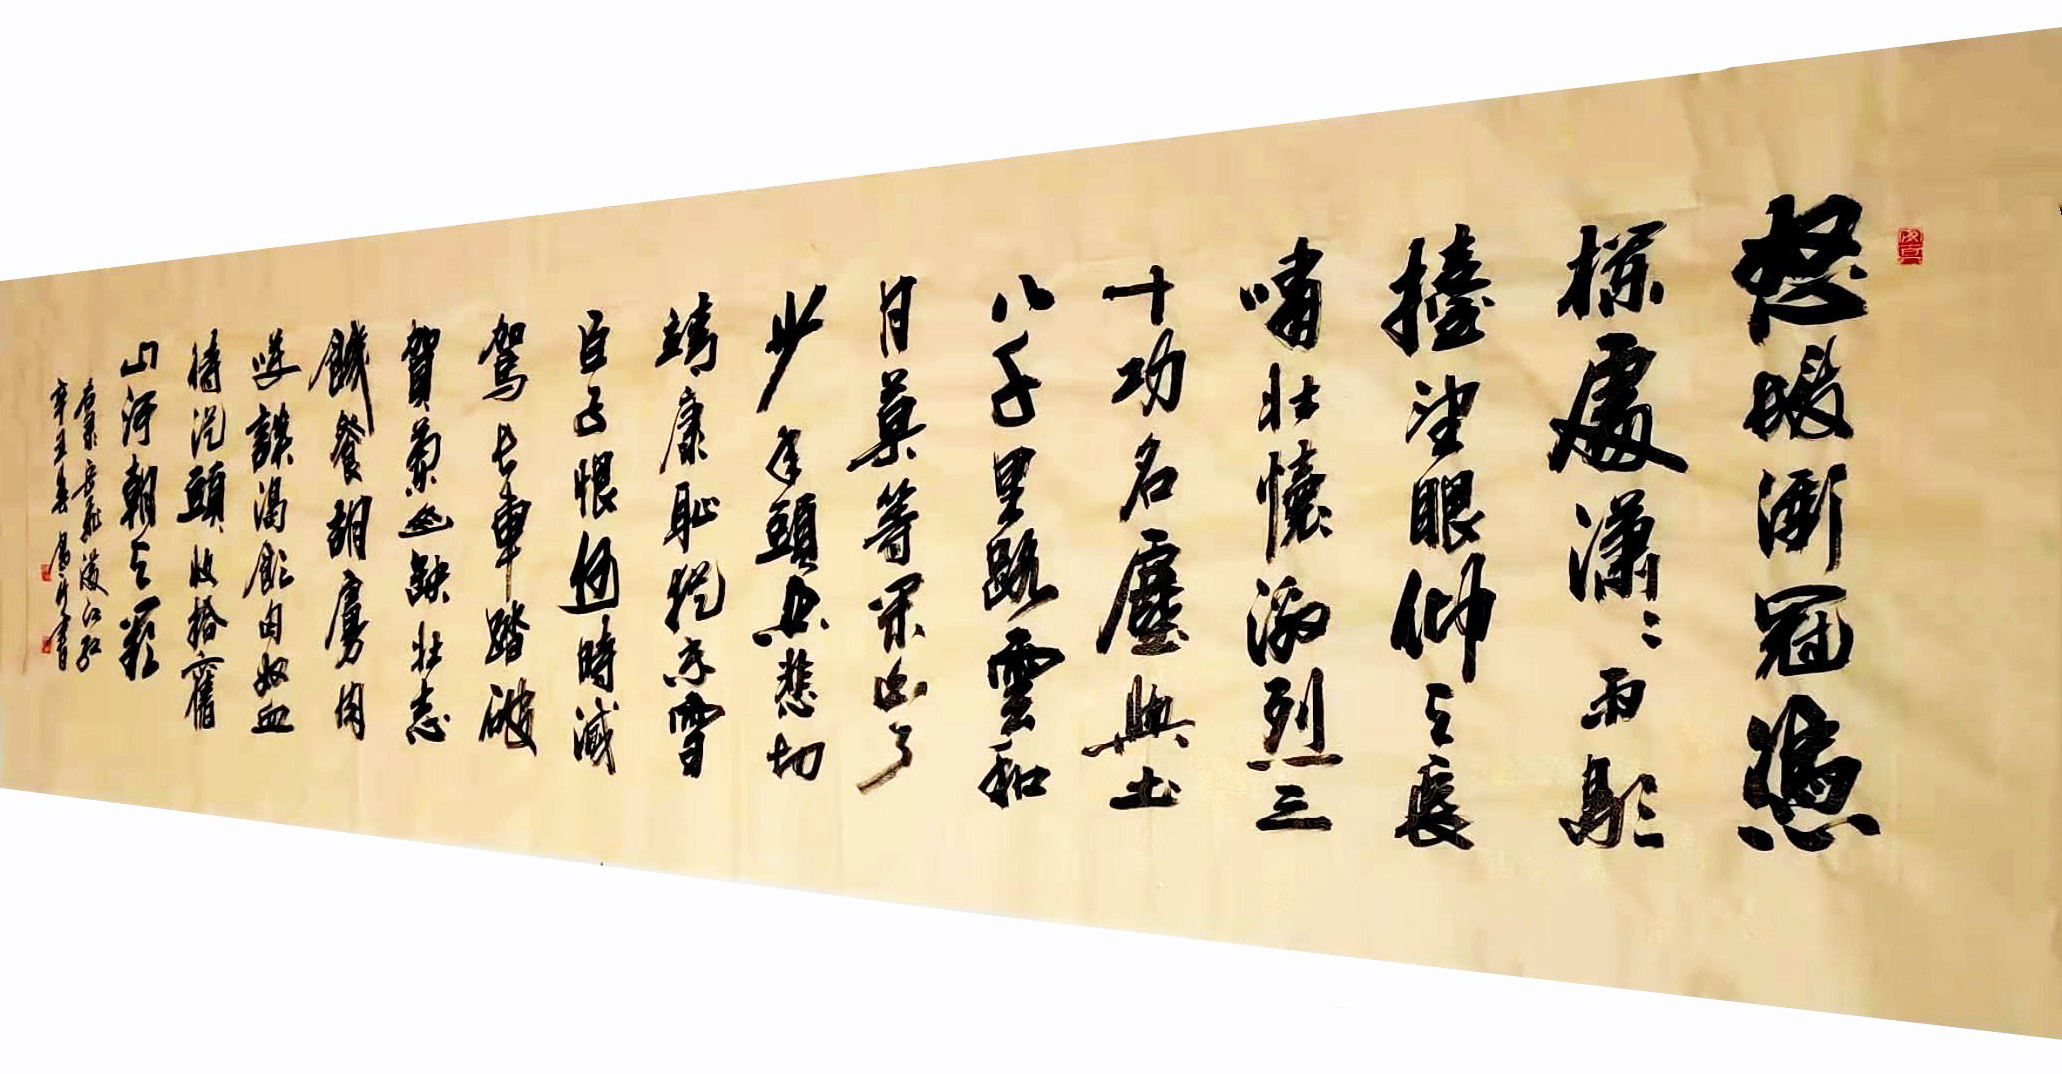 怒髮衝冠憑
欄處瀟〻雨歇
擡望眼仰天長
嘯壯懷激烈三
十功名塵與土
八千里路雲和
月莫等閑白了
少年頭空悲切
靖康恥猶未雪
臣子恨何時滅
駕長車踏破
賀蘭山缺壯志
飢餐胡虜肉
笑談渴飲匈奴血
待從頭收拾舊
山河朝天闕
右录岳飛滿江紅
辛丑春書